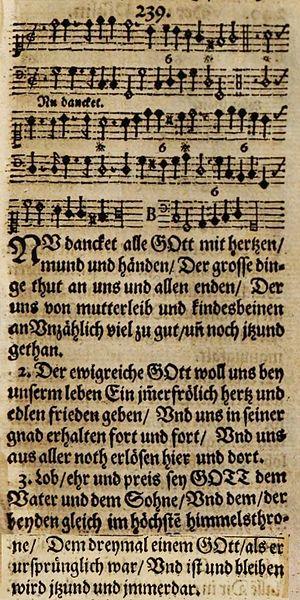 239.
6
Nu dancket.
6
6
6
B
NV dancket alle GOtt mit hertzen/
mund und händen/ Der grosse din-
ge thut an uns und allen enden/ Der
uns von mutterleib und kindesbeinen
an Vnzählich viel zu gut/ uñ noch jtzund
gethan.
2. Der ewigreiche GOtt woll uns bey
unserm leben Ein jm̃erfrölich hertz und
edlen frieden geben/ Vnd uns in seiner
gnad erhalten fort und fort/ Vnd uns
aus aller noth erlösen hier und dort.
3. Lob/ ehr und preis sey GOTT dem
Vater und dem Sohne/ Vnd dem/ der
beyden gleich im höchstẽ himmelsthro-
ne/ Dem dreymal einem GOtt/ als er
ursprünglich war/ Vnd ist und bleiben
wird jtzund und jmmerdar.